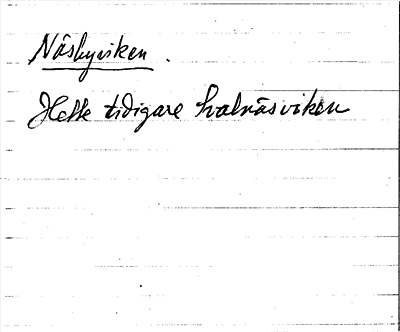 Näsbyviken.
Hette tidigare hvalnäsviken